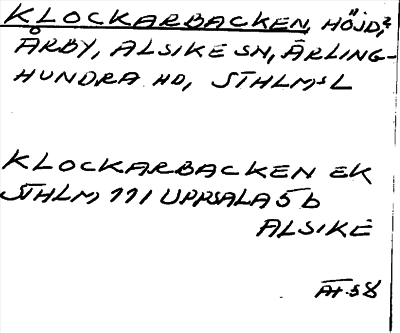 KLOCKARBACKEN, HÖJD,
ÅRBY, ALSIKE SN, ÄRLING-
HUNDRA HD, STHLMS L
KLOCKARBACKEN EK
STHLM 111 UPPSALA 5 b
ALSIKE
58